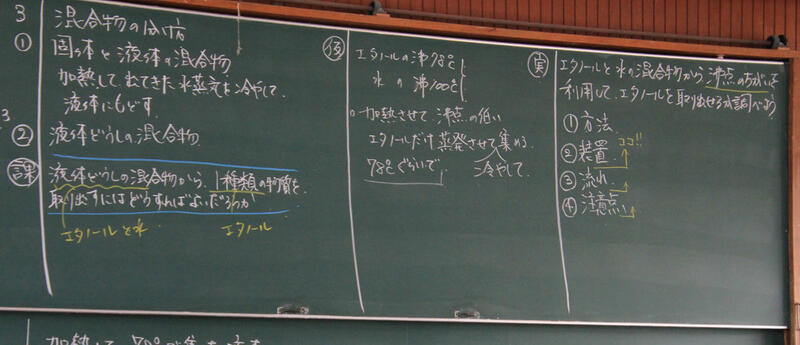 3 混合物の分け方
① 固体と液体の混合物
加熱して出てきた水蒸気を冷やして、
液体にもどす。
3
② 液体どうしの混合物
課 液体どうしの混合物から、1種類の物質を
取り出すにはどうすればよいだろうか
エタノールと水 エタノール
例 エタノールの沸78℃
水の沸100℃
加熱させて沸点の低い
エタノールだけ蒸発させて集める
78℃ぐらいで 冷やして、
実 エタノールと水の混合物から沸点のちがいを
利用して、エタノールを取り出せるか調べよう
① 方法
② 装置 ココ!!
③ 流れ
④ 注意点